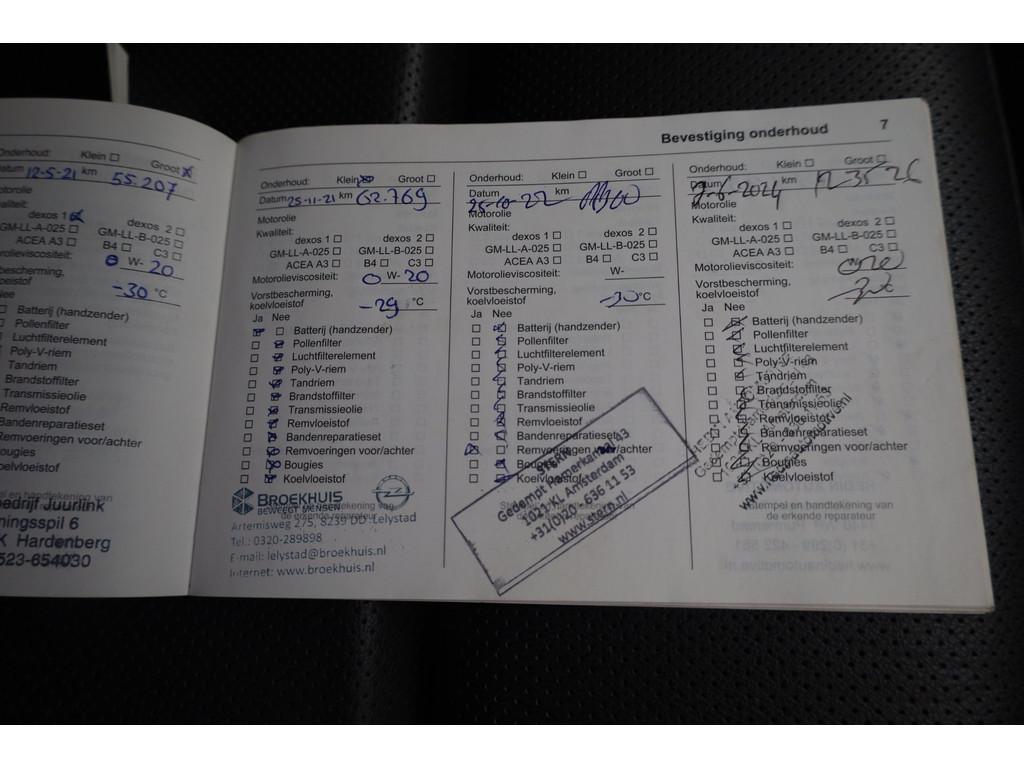 Bevestiging onderhoud 7
Onderhoud: Klein Groot
Datum 12-5-21 km 55.207
Motorolie
Kwaliteit:
dexos 1 dexos 2
GM-LL-A-025 GM-LL-B-025
ACEA A3 B4 C3
Motorolieviscositeit: 0 W- 20
-30 °C
Nee
Batterij (handzender)
Pollenfilter
Luchtfilterelement
Poly-V-riem
Tandriem
Brandstoffilter
Transmissieolie
Remvloeistof
Bandenreparatieset
Remvoeringen voor/achter
Bougies
Koelvloeistof
Stempel en handtekening van
bedrijf Juurlink
ningsspil 6
K Hardenberg
523-654030
Onderhoud: Klein Groot
Datum 25-11-21 km 62.769
Motorolie
Kwaliteit:
dexos 1 dexos 2
GM-LL-A-025 GM-LL-B-025
ACEA A3 B4 C3
Motorolieviscositeit: 0 W- 20
Vorstbescherming,
koelvloeistof -29 °C
Ja Nee
Batterij (handzender)
Pollenfilter
Luchtfilterelement
Poly-V-riem
Tandriem
Brandstoffilter
Transmissieolie
Remvloeistof
Bandenreparatieset
Remvoeringen voor/achter
Bougies
Koelvloeistof
BROEKHUIS
BEWEEGT MENSEN
Artemisweg 275, 8239 DD Lelystad
Tel.: 0320-289898
E-mail: lelystad@broekhuis.nl
Internet: www.broekhuis.nl
Onderhoud: Klein Groot
Datum 25-10-22 km
Motorolie
Kwaliteit:
dexos 1 dexos 2
GM-LL-A-025 GM-LL-B-025
ACEA A3 B4 C3
Motorolieviscositeit: W-
Vorstbescherming,
koelvloeistof -30 °C
Ja Nee
Batterij (handzender)
Pollenfilter
Luchtfilterelement
Poly-V-riem
Tandriem
Brandstoffilter
Transmissieolie
Remvloeistof
Bandenreparatieset
Remvoeringen voor/achter
Bougies
Koelvloeistof
STERN
Gedempt Hamerkanaal 43
1021 KL Amsterdam
+31(0)20 - 636 11 53
www.stern.nl
Onderhoud: Klein Groot
Datum 2024 km
Motorolie
Kwaliteit:
dexos 1 dexos 2
GM-LL-A-025 GM-LL-B-025
ACEA A3 B4 C3
Motorolieviscositeit:
Vorstbescherming,
koelvloeistof
Ja Nee
Batterij (handzender)
Pollenfilter
Luchtfilterelement
Poly-V-riem
Tandriem
Brandstoffilter
Transmissieolie
Remvloeistof
Bandenreparatieset
Remvoeringen voor/achter
Bougies
Koelvloeistof
Stempel en handtekening van
de erkende reparateur